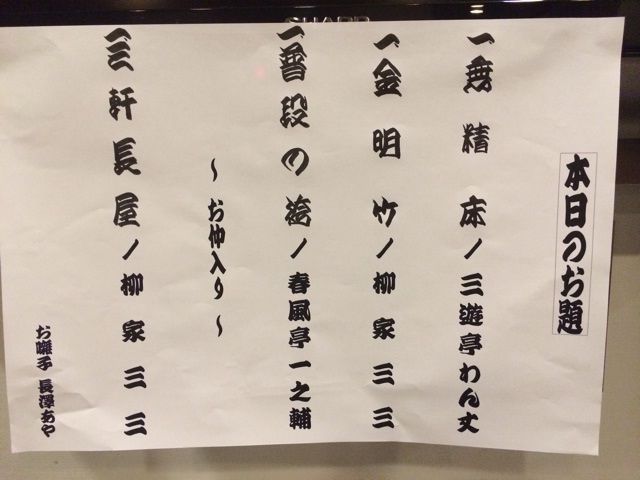 本日のお題
一、無精床／三遊亭わん丈
一、金明竹／柳家三三
一、普段の袴／春風亭一之輔
～お仲入り～
一、三軒長屋／柳家三三
お囃子 長澤あや